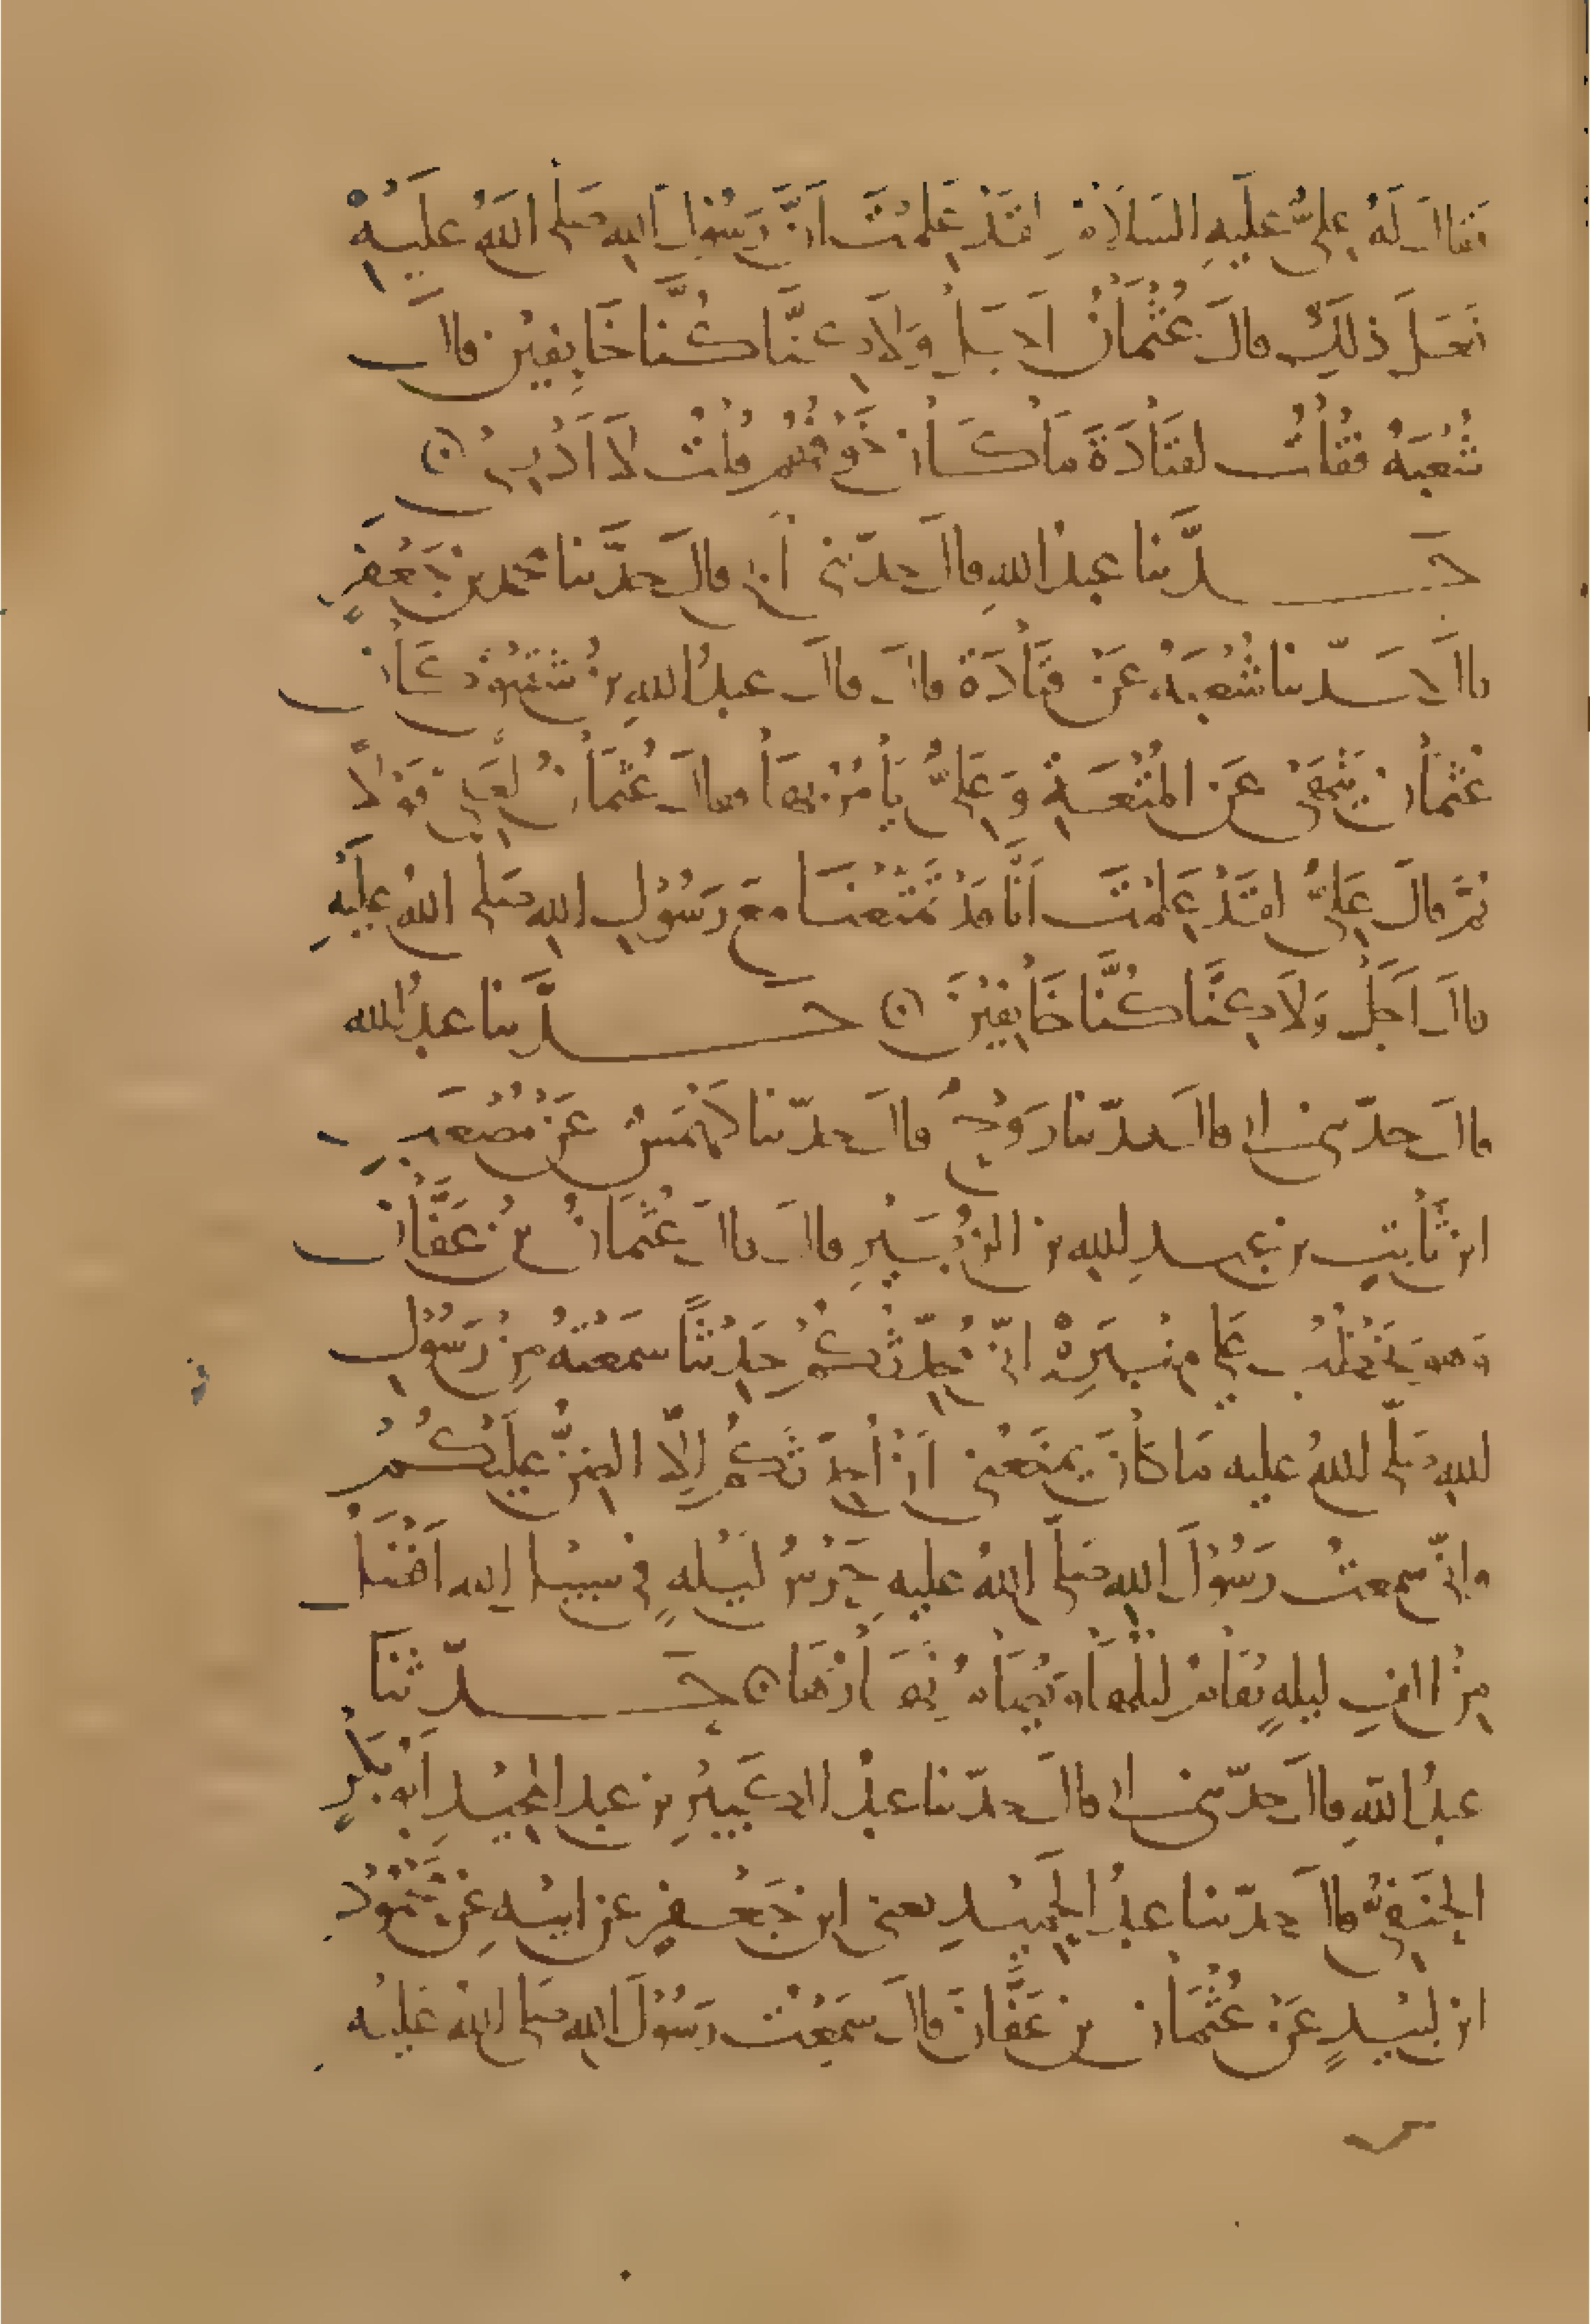 فقال لَهُ عليٌّ عليهِ السَلَامُ لقَدْ عَلِمْتَ اَنَّ رَسُوْلَ الله صَلى اللهُ عليهِ
فَعَلَ ذلِكَ قالَ عُثْمَانُ اَجَلْ وَلَكِنَّا كُنَّا خَايفِيْن قال
شُعْبَهُ فقُلْتُ لقتَادَةَ مَا كَانَ خَوْفُهُمْ قُلْتُ لَا اَدْرِي
حَدَّثنا عبدُالله قال حدّثني اَبي قال حدَّثنا محمد بنُ جَعْفَرٍ
قال حَدّثنا شُعْبَهُ عَنْ قَتَادَةَ قال قال عبدُاللهِ بنُ شَقِيْقٍ كان
عُثْمَانُ يَنْهَى عَن المُتْعَةِ وَعَلِيٌّ يَأْمُرُ بهَا فقال عُثْمَانُ لِعَلِيٍّ قَوْلًا
ثمَّ قالَ عَلِيٌّ لقَدْ عَلِمْتَ اَنَّا قَدْ تَمَتَّعْنَا معَ رَسُوْلِ الله صَلى اللهُ عليهِ
قال اَجَلْ وَلَكِنَّا كُنَّا خَايفِيْنَ حَدَّثنا عبدُالله
قال حدّثني ابي قال حدّثنا رَوْحٌ قال حدّثنا كَهْمَسٌ عَنْ مُصْعَبِ
ابن ثَابتِ بن عبدِ الله بن الزُّبَيْرِ قال قال عُثْمَانُ بنُ عَفَّان
وَهوَ يَخْطُبُ على مِنْبَرِهْ انّي مُحَدِّثُكُمْ حَدِيْثًا سَمِعْتهُ مِنْ رَسُوْلِ
الله صَلّى اللهُ عليه مَا كَانَ يمنَعُني اَنْ اُحَدّثَكُمْ اِلّا الضِنُّ عَلَيْكُمْ
واِنّي سَمعتُ رَسُوْلَ الله صَلّى اللهُ عليه حَرْسُ لَيْلهٍ في سبيْلِ الله اَفْضَلُ
مِنْ الفِ ليلهٍ يُقَامُ ليْلُهَا ويُصَامُ نهَارُهَا حَدّثنَا
عبدُ اللهِ قال حدّثني ابي قال حدّثنا عبدُ الكَبِيْرِ بن عبد المجيْد اَبُو بَكْرٍ
الحَنَفِيُّ قال حدّثنا عبدُ الحَمِيْدِ يعني ابن جَعْفَرٍ عن ابيْهِ عَنْ مَحْمُوْدِ
ابن لبيْدٍ عَنْ عُثْمَان بنِ عَفَّانَ قال سَمِعْتُ رَسُوْلَ الله صَلى اللهُ عليْه